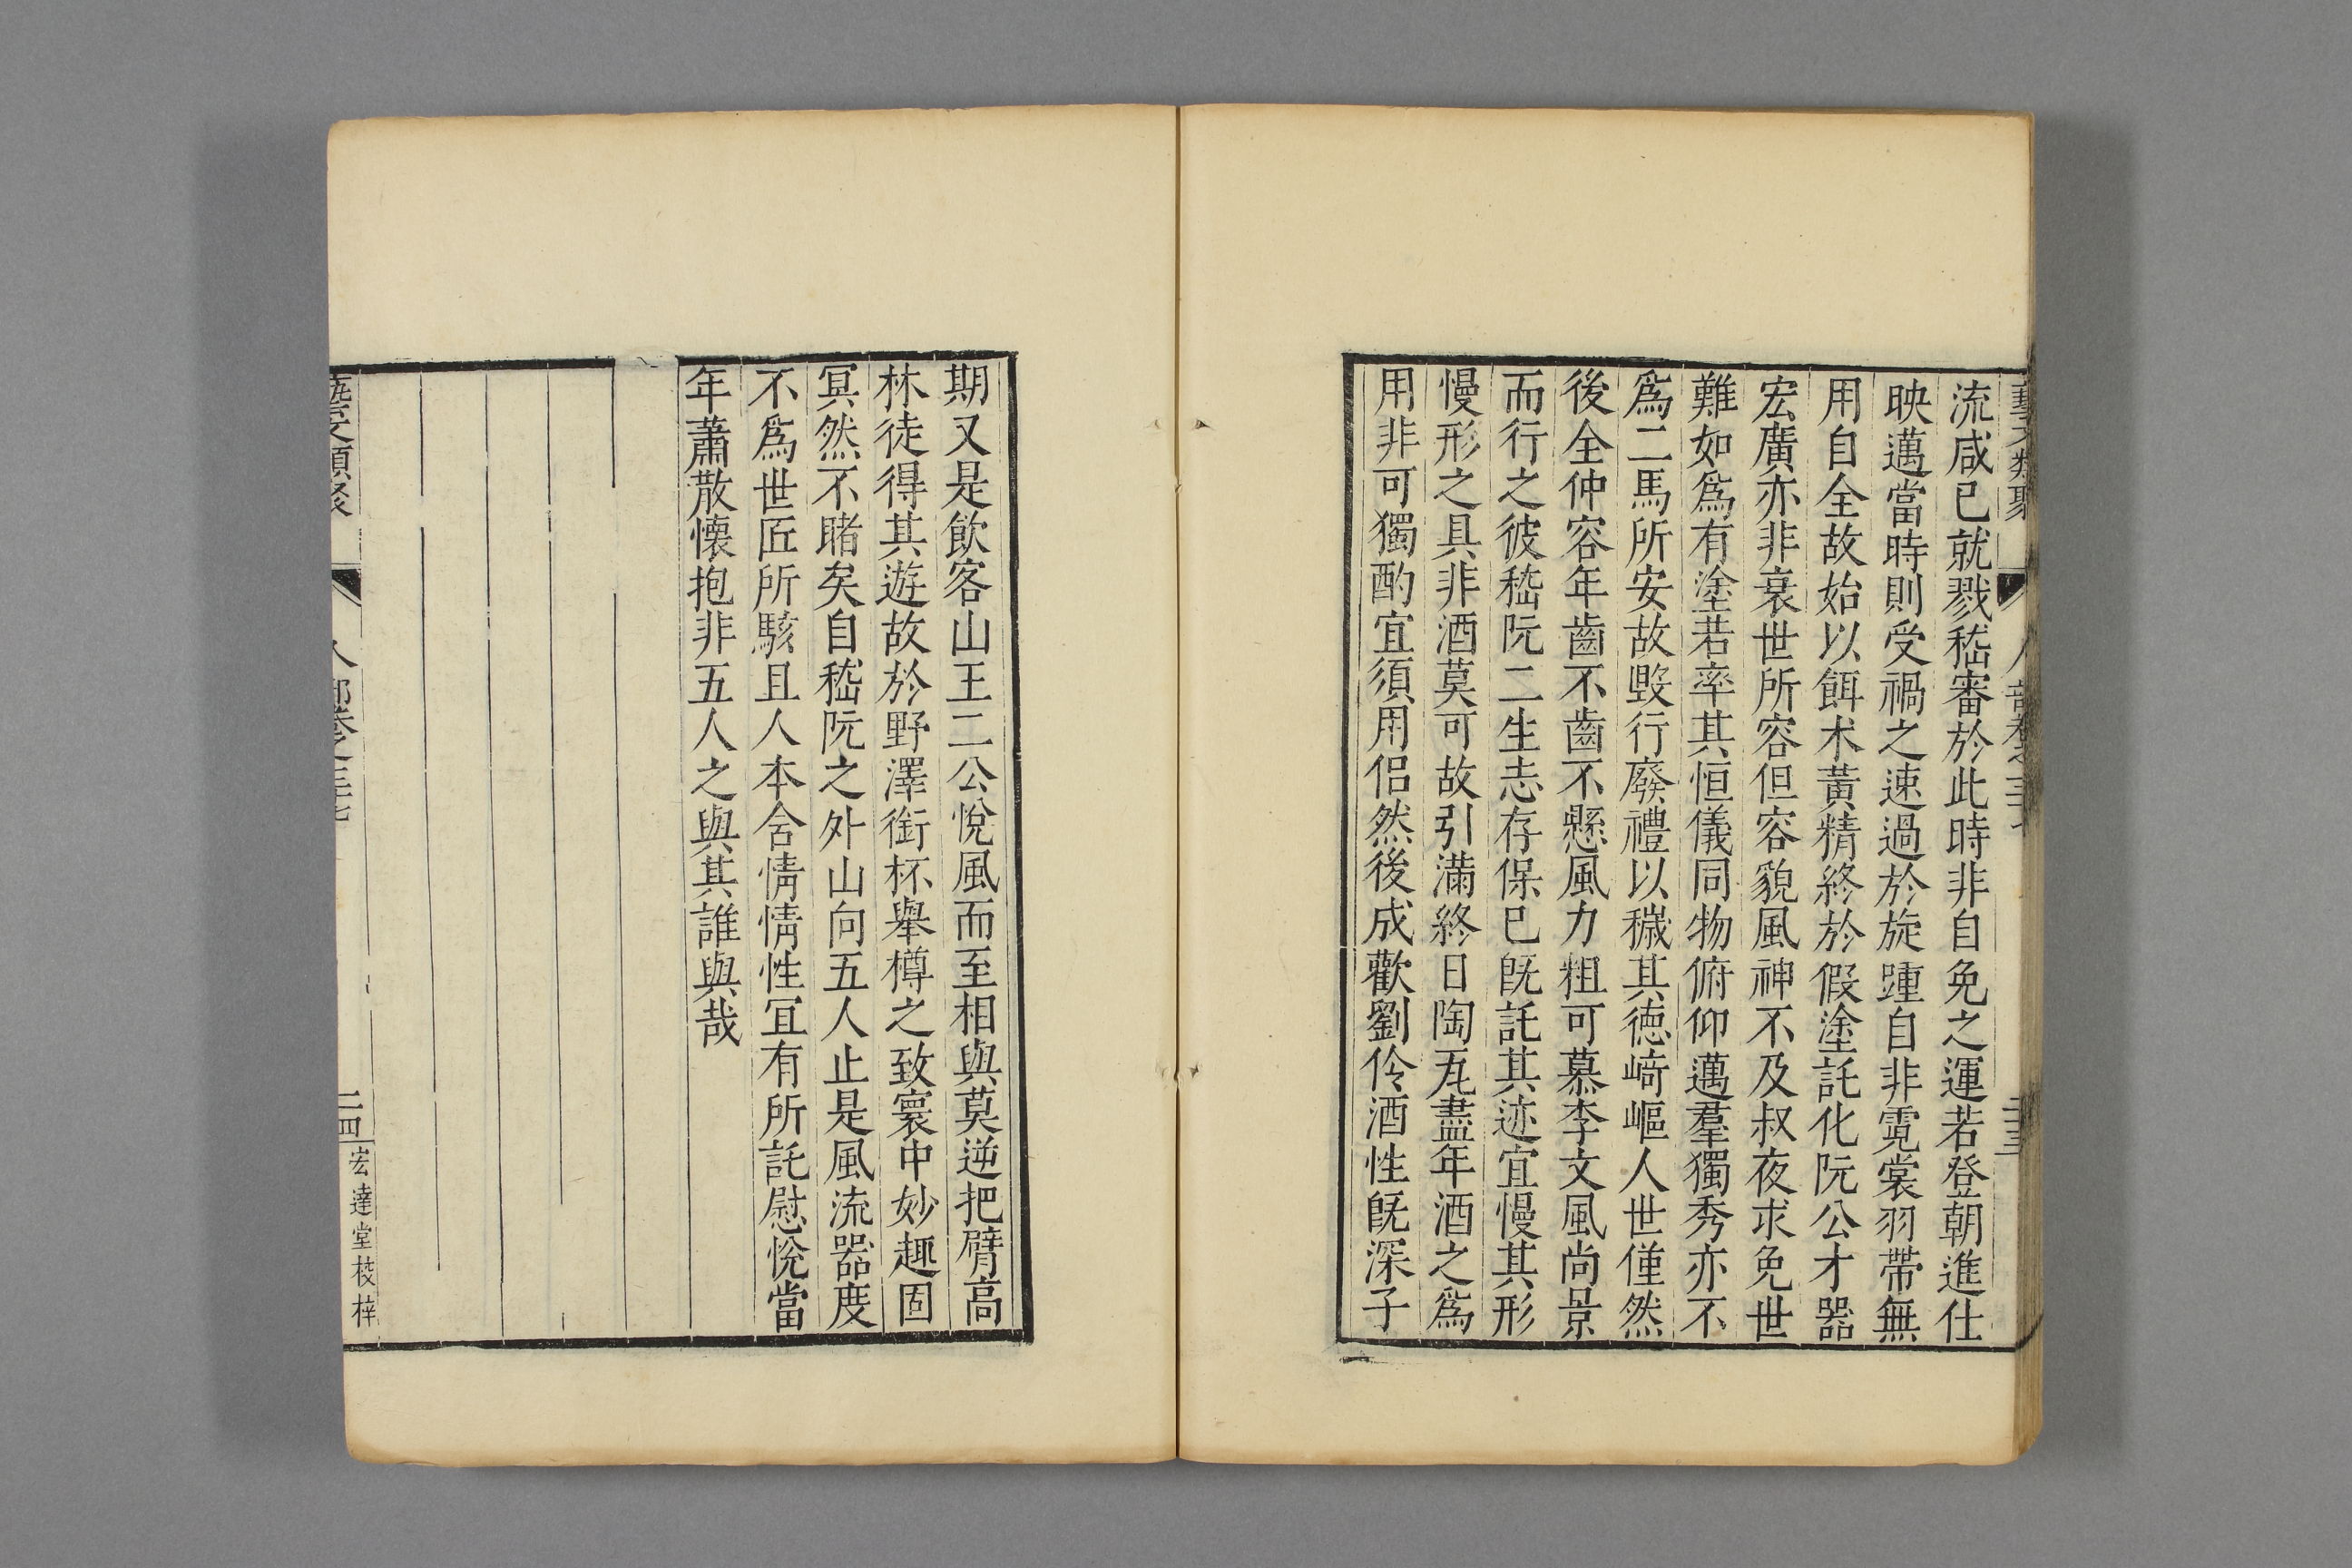 藝文類聚 人部卷之三十七 二十三
流咸已就戮嵇審於此時非自免之運若登朝進仕
映邁當時則受禍之速過於旋踵自非霓裳羽帶無
用自全故始以餌朮黃精終於假塗託化阮公才器
宏廣亦非衰世所容但容貌風神不及叔夜求免世
難如爲有塗若率其恒儀同物俯仰邁羣獨秀亦不
爲二馬所安故毁行廢禮以穢其德﨑嶇人世僅然
後全仲容年齒不齒不懸風力粗可慕李文風尚景
而行之彼嵇阮二生志存保已旣託其迹宜慢其形
慢形之具非酒莫可故引滿終日陶兀盡年酒之爲
用非可獨酌宜須用侣然後成歡劉伶酒性旣深子
期又是飲客山王二公悅風而至相與莫逆把臂高
林徒得其遊故於野澤銜杯舉樽之致寰中妙趣固
冥然不睹矣自嵇阮之外山向五人止是風流器度
不爲世匠所駭且人本含情情性宜有所託慰悅當
年蕭散懷抱非五人之與其誰與哉
藝文類聚 人部卷之三十七 二四 宏達堂校梓